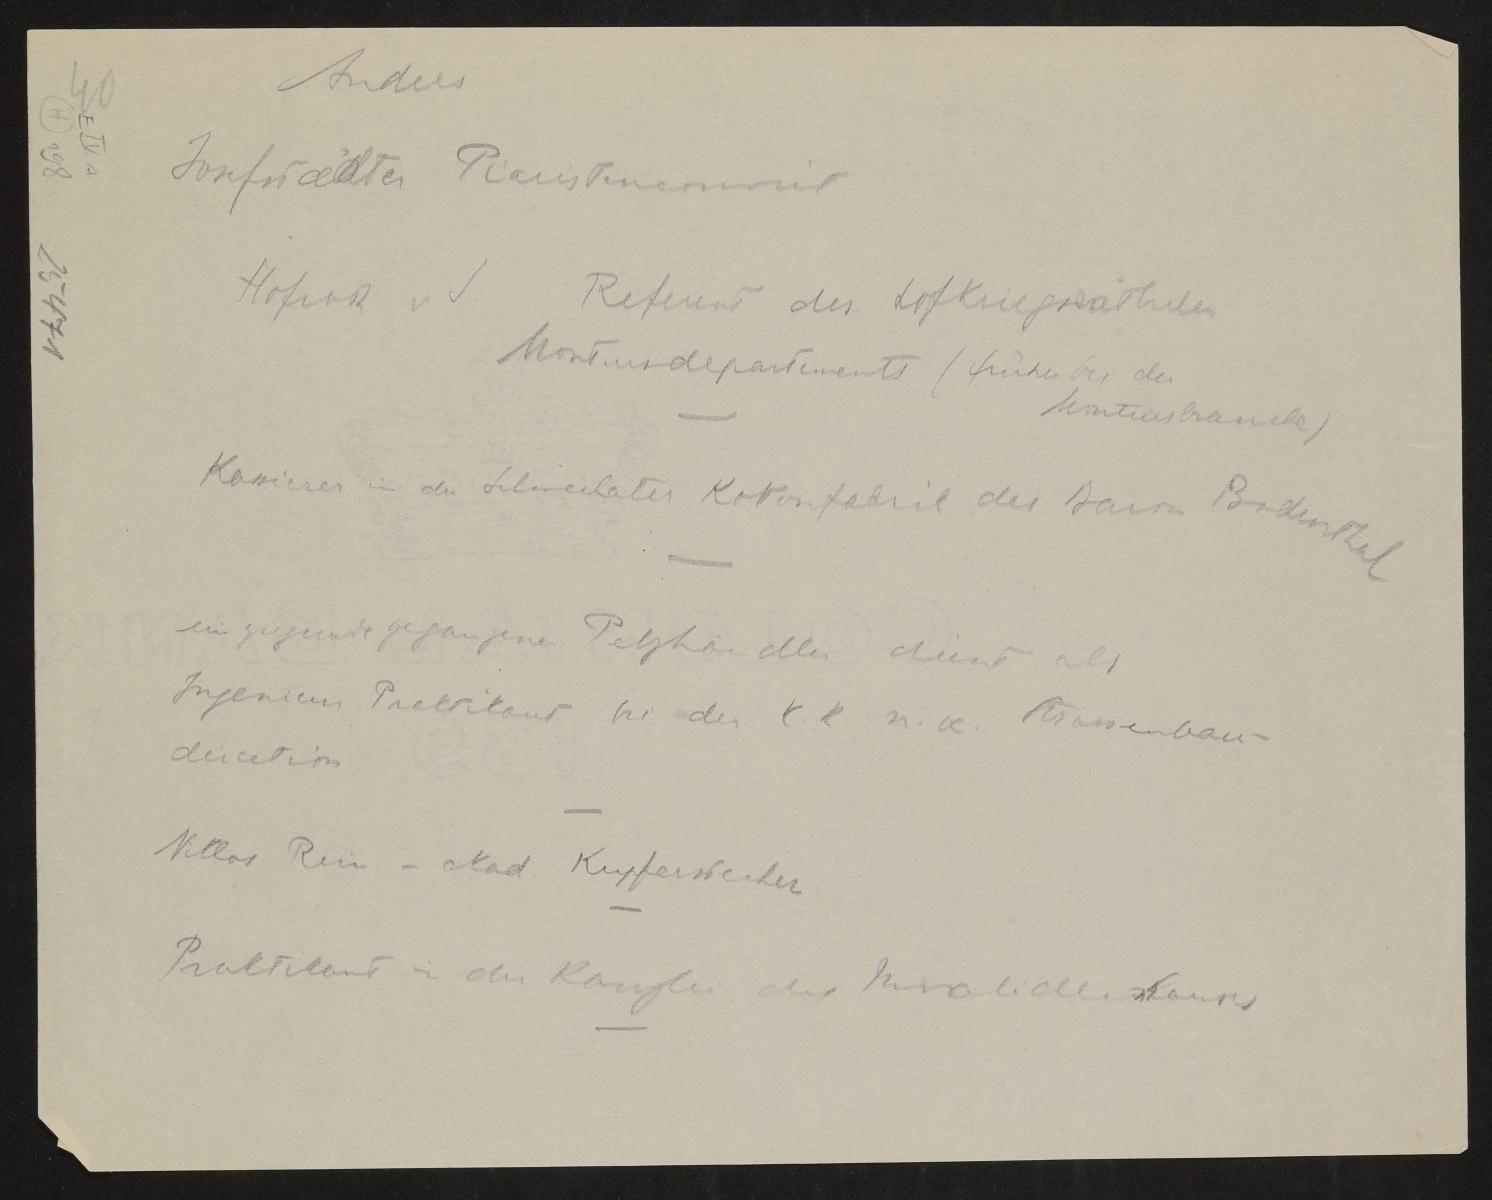 Anders
Josefstädter Piaristenconvict
Hofrath v J Referent des Hofkriegsräthlichen
Montursdepartements (früher bei der
Montursbranche)
Kassierer in der Schwechater Kottonfabrik des Baron Badenthal
ein zugrunde gegangener Pelzhändler dient als
Ingenieur Praktikant bei der K. K. n. oe. Strassenbau-
direction
Niklas Rein - akad. Kupferstecher
Praktikant in der Kanzlei des Invalidenhauses
40
E IV a
H 198
25471